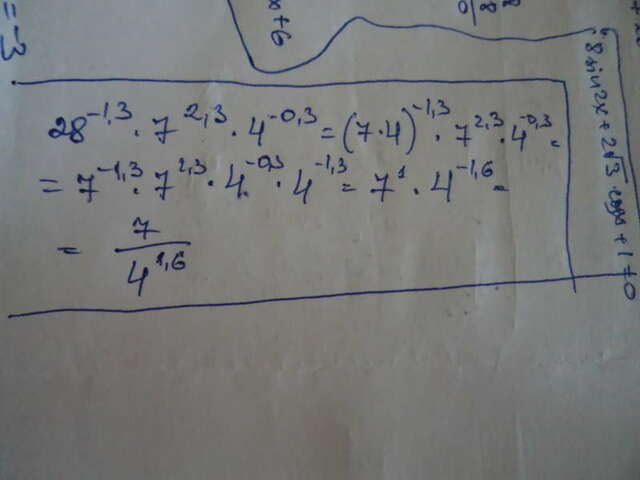 = -3
x+6
8
8
0
28^{-1,3} · 7^{2,3} · 4^{-0,3} = (7·4)^{-1,3} · 7^{2,3} · 4^{-0,3} =
= 7^{-1,3} · 7^{2,3} · 4^{-0,3} · 4^{-1,3} = 7^1 · 4^{-1,6} =
= \frac{7}{4^{1,6}}
8 sin 2x + 2√3 cos x + 1 = 0